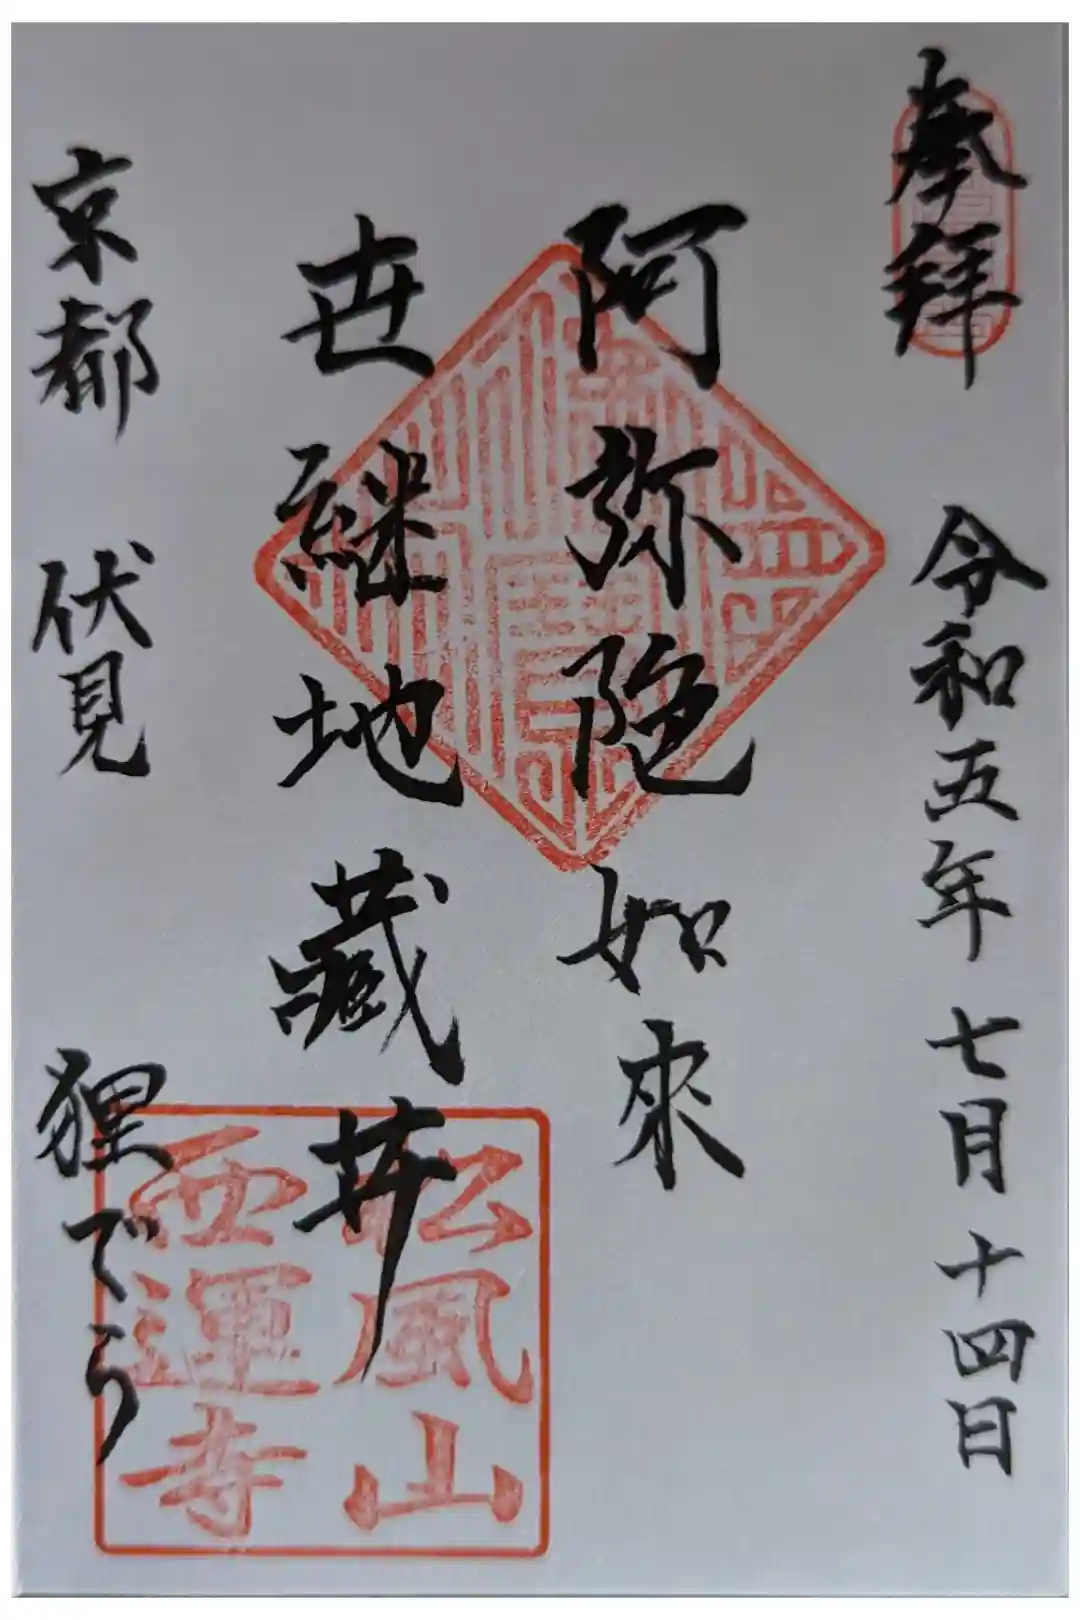 奉拝 令和五年 七月 十四日
阿弥陀如來
世継地藏井
京都 伏見 狸でら
松風山
西運寺